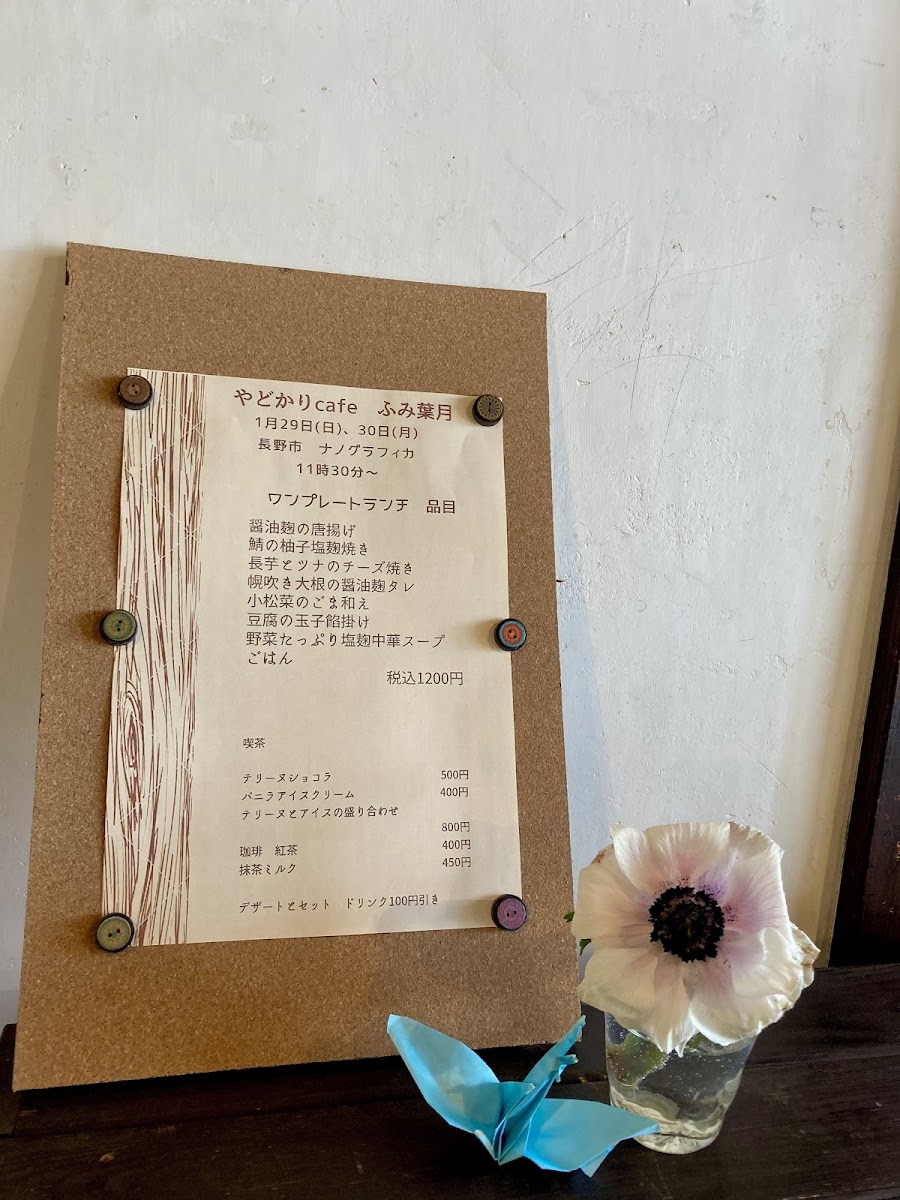 やどかりcafe　ふみ葉月
1月29日(日)、30日(月)
長野市　ナノグラフィカ
11時30分～
ワンプレートランチ　品目
醤油麹の唐揚げ
鯖の柚子塩麹焼き
長芋とツナのチーズ焼き
幌吹き大根の醤油麹タレ
小松菜のごま和え
豆腐の玉子餡掛け
野菜たっぷり塩麹中華スープ
ごはん
税込1200円
喫茶
テリーヌショコラ　500円
バニラアイスクリーム　400円
テリーヌとアイスの盛り合わせ
800円
珈琲　紅茶　400円
抹茶ミルク　450円
デザートとセット　ドリンク100円引き